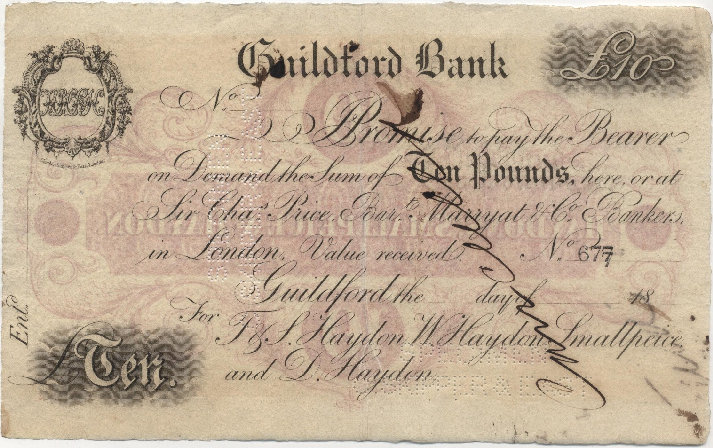 Guildford Bank
£10
No.
I Promise to pay the Bearer
on Demand the Sum of Ten Pounds, here, or at
Sir Chas. Price, Bart. Marryat & Co. Bankers,
in London, Value received No. 677
Guildford, the day of 18
For F & S. Haydon, W. Haydon, Smallpeice,
and D. Haydon.
Entd.
£Ten.